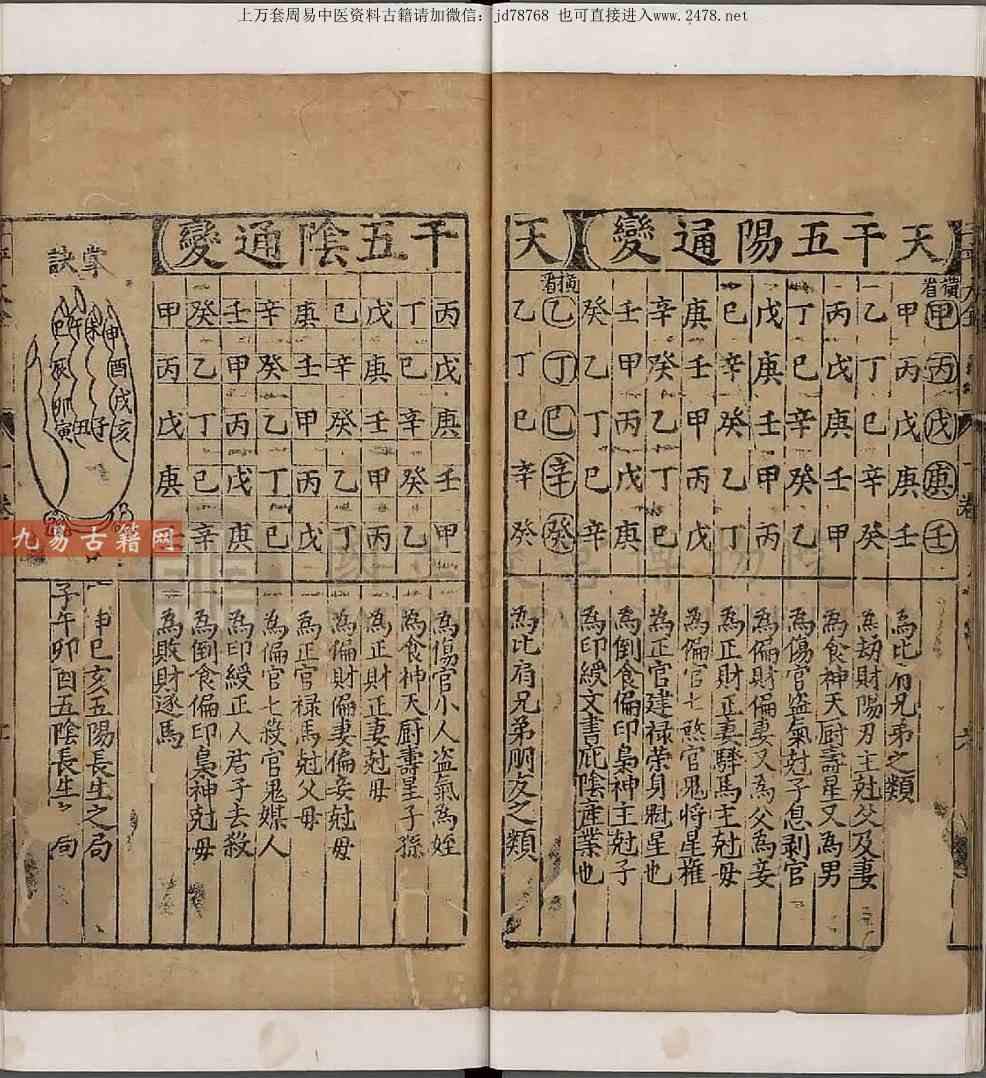 上万套周易中医资料古籍请加微信：jd78768 也可直接进入www.2478.net
天干五陽通變
橫看
甲丙戊庚壬
甲丙戊庚壬
為比肩兄弟之類
乙丁巳辛癸
為劫財陽刃主尅父及妻
丙戊庚壬甲
為食神天厨壽星又為男
丁巳辛癸乙
為傷官盜氣尅子息剥官
戊庚壬甲丙
為偏財偏妻又為父為妾
巳辛癸乙丁
為正財正妻驛馬主尅母
庚壬甲丙戊
為偏官七煞官鬼將星權
辛癸乙丁巳
為正官建禄榮身魁星也
壬甲丙戊庚
為倒食偏印梟神主尅子
癸乙丁巳辛
為印綬文書庇陰產業也
天
橫看
乙丁巳辛癸
乙丁巳辛癸
為比肩兄弟朋友之類
干五陰通變
丙戊庚壬甲
為傷官小人盜氣為姪
丁巳辛癸乙
為食神天厨壽星子孫
戊庚壬甲丙
為正財正妻尅母
巳辛癸乙丁
為偏財偏妻偏妾尅母
庚壬甲丙戊
為正官禄馬尅父母
辛癸乙丁巳
為偏官七殺官鬼媒人
壬甲丙戊庚
為印綬正人君子去殺
癸乙丁巳辛
為倒食偏印梟神尅母
甲丙戊庚
為敗財逐馬
掌訣
申酉戌亥
未
午
巳辰卯寅
丑子
申巳亥五陽長生之局
子午卯酉五陰長生局
九易古籍网